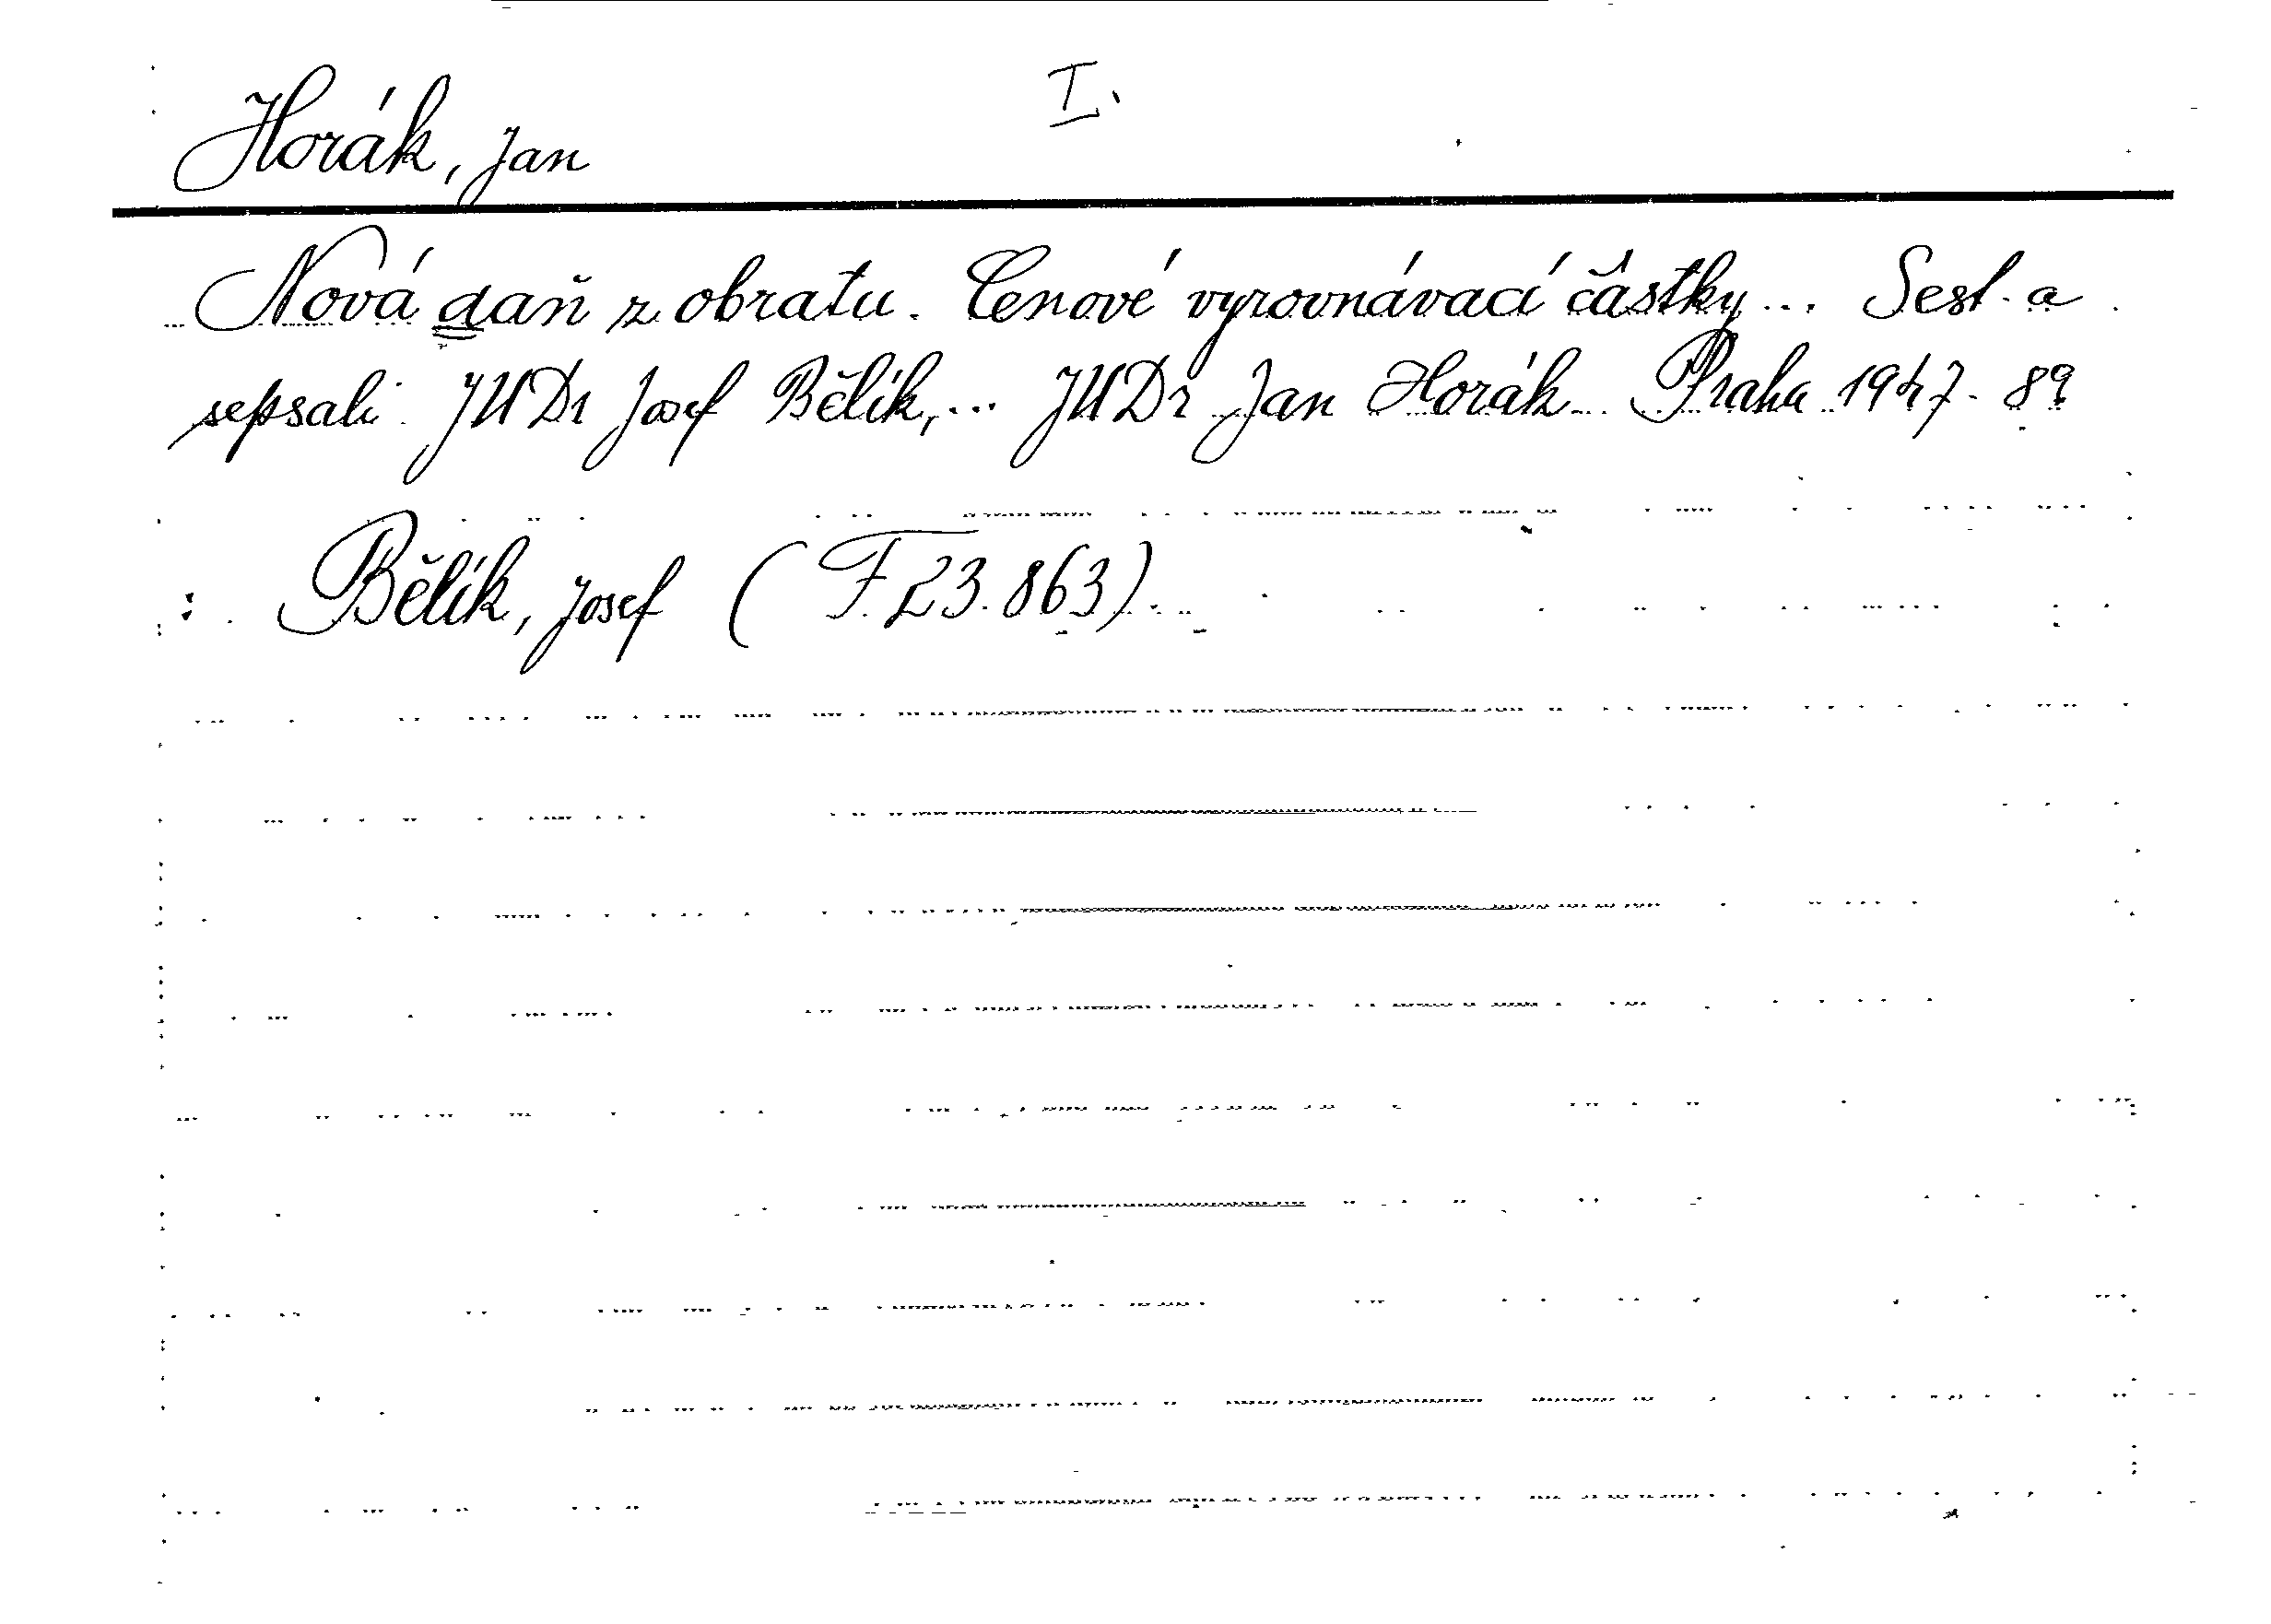 Horák, Jan I.
Nová daň z obratu. Cenové vyrovnávací částky... Sest. a
sepsali JUDr Josef Bělík,... JUDr Jan Horák. Praha 1947. 8º
: Bělík, Josef (F 23.863).